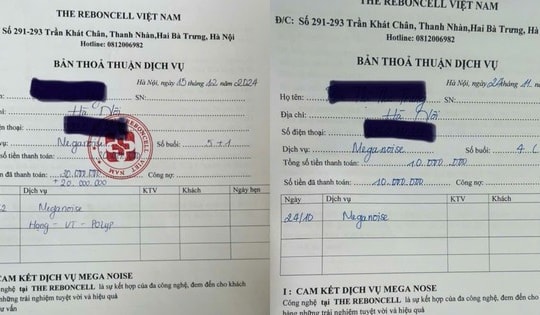 THE REBONCELL VIỆT NAM
Số 291-293 Trần Khát Chân, Thanh Nhàn,Hai Bà Trưng, Hà Nội
Hotline: 0812006982
BẢN THOẢ THUẬN DỊCH VỤ
Hà Nội, ngày 15 tháng 12 năm 2024
SN:
Hà Nội
thoại:
Meganoise Số buổi: 5+1
tiền thanh toán: 20.000.000
đã thanh toán: Công nợ:
+ 20.000.000
Dịch vụ KTV Khách Ngày hẹn
Meganoise
Họng - VT - POLYP
CAM KẾT DỊCH VỤ MEGA NOISE
nghệ tại THE REBONCELL là sự kết hợp của đa công nghệ, đem đến cho khách
những trải nghiệm tuyệt vời và hiệu quả
THE REBONCELL VIỆT NAM
Đ/C: Số 291-293 Trần Khát Chân, Thanh Nhàn,Hai Bà Trưng,
Hotline: 0812006982
BẢN THOẢ THUẬN DỊCH VỤ
Hà Nội, ngày 24 tháng 11 năm
Họ tên: SN:
Địa chỉ: Hà Nội
Số điện thoại:
Dịch vụ: Meganoise Số buổi: 4
Tổng số tiền thanh toán: 10.000.000
Số tiền đã thanh toán: 10.000.000 Công nợ:
Ngày Dịch vụ KTV Khách
24/10 Meganoise
I : CAM KẾT DỊCH VỤ MEGA NOSE
Công nghệ tại THE REBONCELL là sự kết hợp của đa công nghệ, đem
hàng những trải nghiệm tuyệt vời và hiệu quả